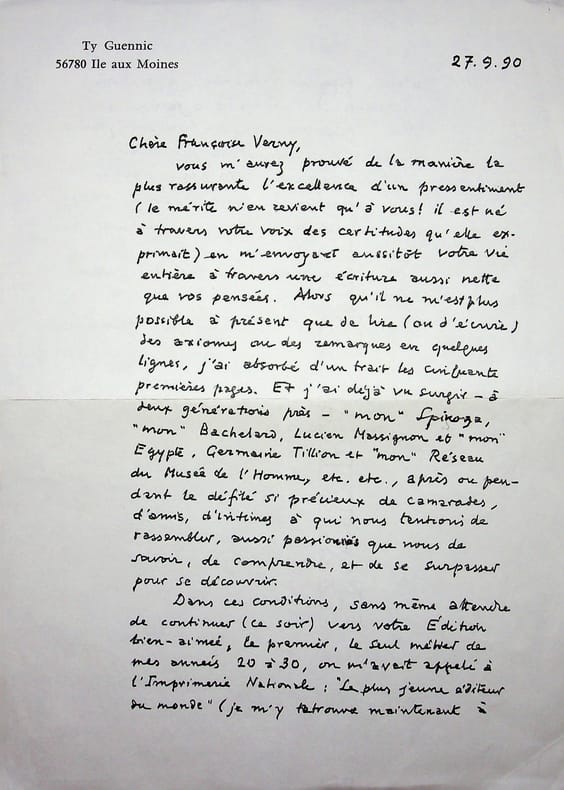 Ty Guennic
56780 Ile aux Moines
27.9.90
Chère Françoise Verny,
vous m'avez prouvé de la manière la
plus rassurante l'excellence d'un pressentiment
(le mérite n'en revient qu'à vous! il est né
à travers votre voix des certitudes qu'elle ex-
primait) en m'envoyant aussitôt votre vie
entière à travers une écriture aussi nette
que vos pensées. Alors qu'il ne m'est plus
possible à présent que de lire (ou d'écrire)
des axiomes ou des remarques en quelques
lignes, j'ai absorbé d'un trait les cinquante
premières pages. Et j'ai déjà vu surgir – à
deux générations près – "mon" Spinoza,
"mon" Bachelard, Lucien Massignon et "mon"
Egypte, Germaine Tillion et "mon" Réseau
du Musée de l'Homme, etc. etc., après ou pen-
dant le défilé si précieux de camarades,
d'amis, d'intimes à qui nous tentions de
ressembler, aussi passionnés que nous de
savoir, de comprendre, et de se surpasser
pour se découvrir.
Dans ces conditions, sans même attendre
de continuer (ce soir) vers votre Édition
bien-aimée, le premier, le seul métier de
mes années 20 à 30, on m'avait appelé à
l'Imprimerie Nationale : "Le plus jeune éditeur
du monde" (je m'y retrouve maintenant à